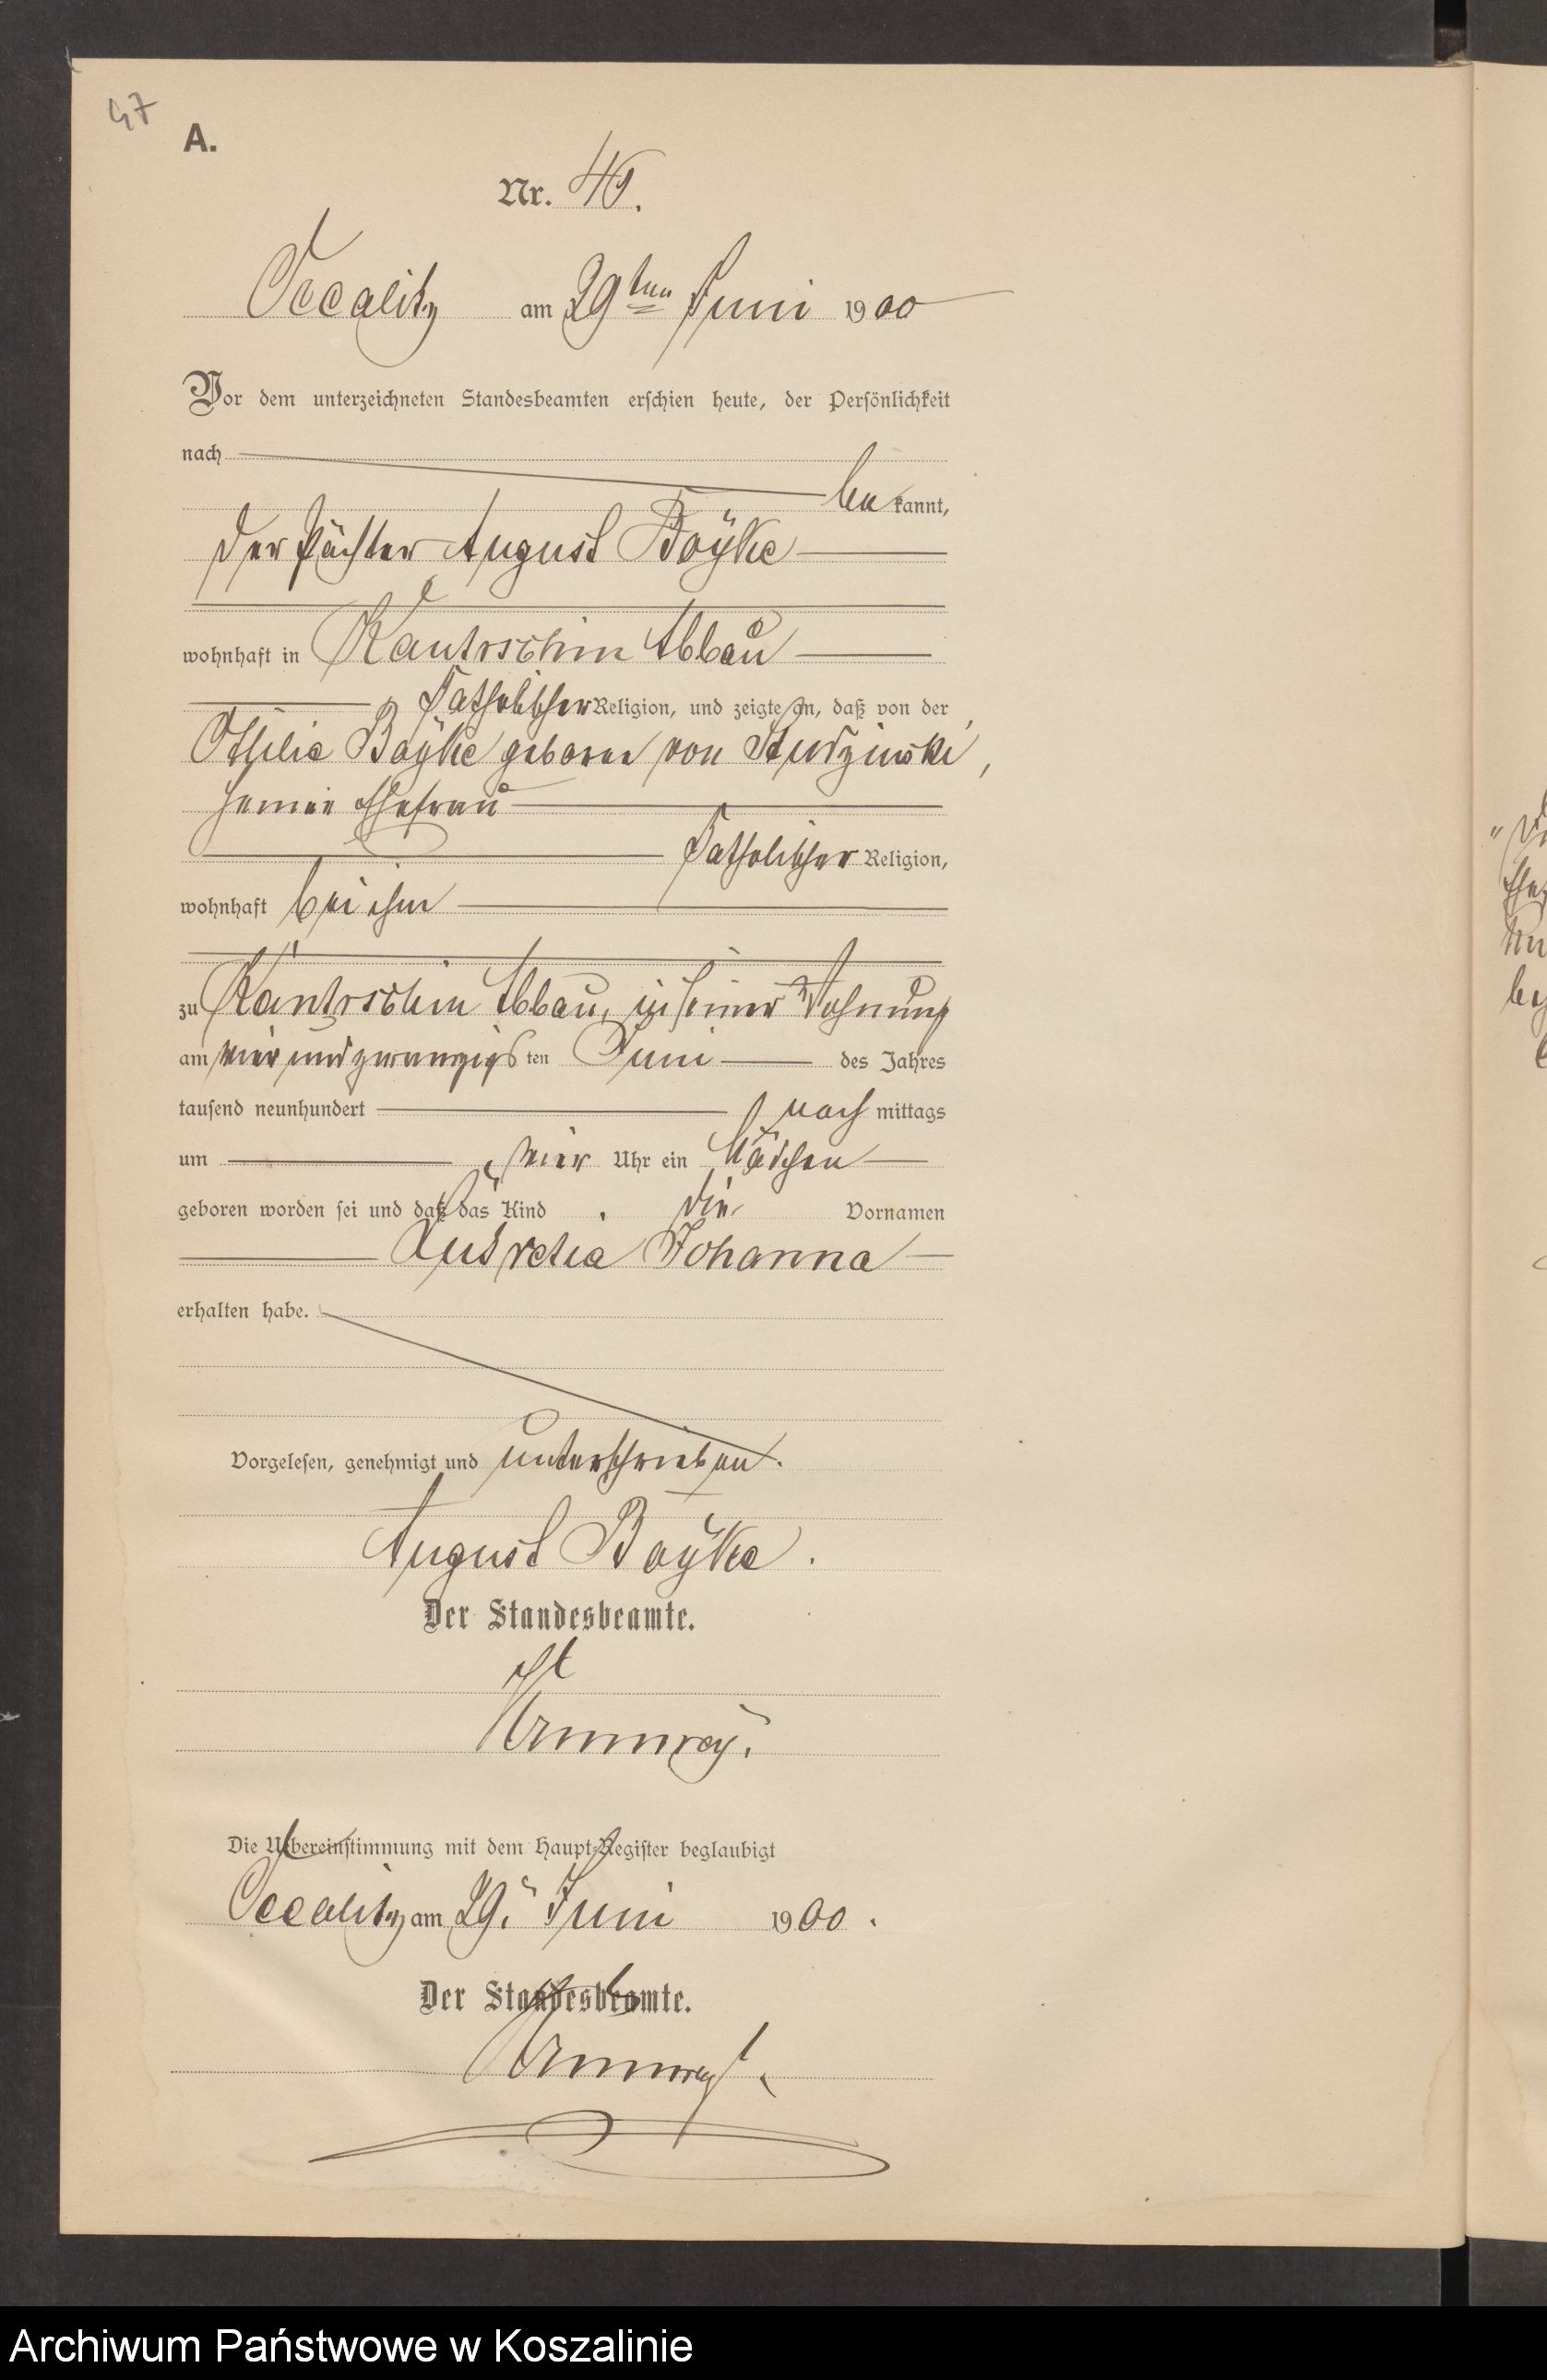 47
A.
Nr. 45.
Occalitz am 29ten Juni 1900
Vor dem unterzeichneten Standesbeamten erschien heute, der Persönlichkeit
nach
be kannt,
der Pächter August Boÿke
wohnhaft in Kantrschin Abbau
katholischer Religion, und zeigte an, daß von der
Ottilie Boÿke geborne von Studzinski,
seiner Ehefrau
katholischer Religion,
wohnhaft bei ihm
zu Kantrschin Abbau, in seiner Wohnung
am vier und zwanzigsten Juni des Jahres
tausend neunhundert nach mittags
um vier Uhr ein Mädchen
geboren worden sei und daß das Kind die Vornamen
Johanna
erhalten habe.
Vorgelesen, genehmigt und unterschrieben.
August Boÿke.
Der Standesbeamte.
Die Uebereinstimmung mit dem Haupt-Register beglaubigt
Occalitz am 29. Juni 1900.
Der Standesbeamte.
Archiwum Państwowe w Koszalinie